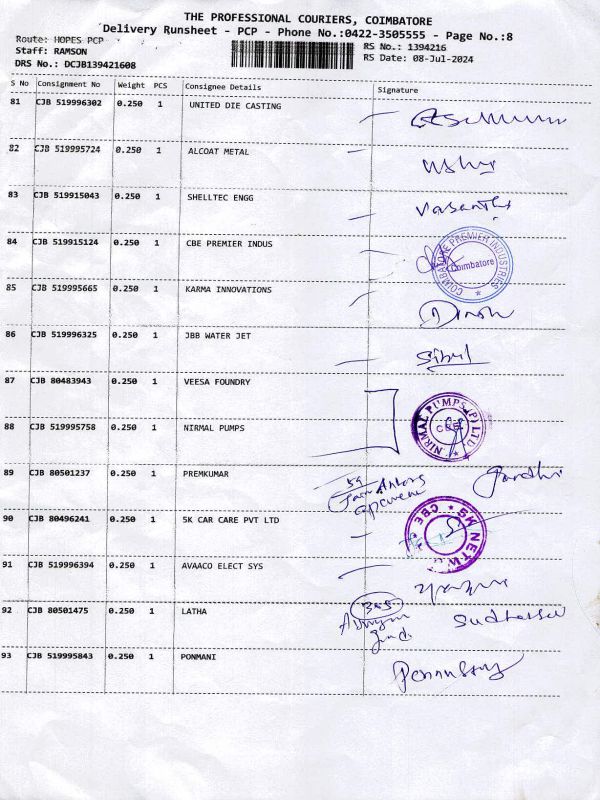 THE PROFESSIONAL COURIERS, COIMBATORE
Delivery Runsheet - PCP - Phone No.:0422-3505555 - Page No.:8
Route: HOPES PCP
RS No.: 1394216
Staff: RAMSON
RS Date: 08-Jul-2024
DRS No.: DCJB139421608
S No Consignment No Weight PCS Consignee Details Signature
81 CJB 519996302 0.250 1 UNITED DIE CASTING
82 CJB 519995724 0.250 1 ALCOAT METAL
83 CJB 519915043 0.250 1 SHELLTEC ENGG Vasanthi
84 CJB 519915124 0.250 1 CBE PREMIER INDUS
COIMBATORE PREMIER INDUSTRIES
Coimbatore
85 CJB 519995665 0.250 1 KARMA INNOVATIONS
86 CJB 519996325 0.250 1 JBB WATER JET
87 CJB 80483943 0.250 1 VEESA FOUNDRY
88 CJB 519995758 0.250 1 NIRMAL PUMPS
NIRMAL PUMPS (P) LTD
CBE
89 CJB 80501237 0.250 1 PREMKUMAR
90 CJB 80496241 0.250 1 5K CAR CARE PVT LTD
CBE
91 CJB 519996394 0.250 1 AVAACO ELECT SYS
92 CJB 80501475 0.250 1 LATHA
93 CJB 519995843 0.250 1 PONMANI